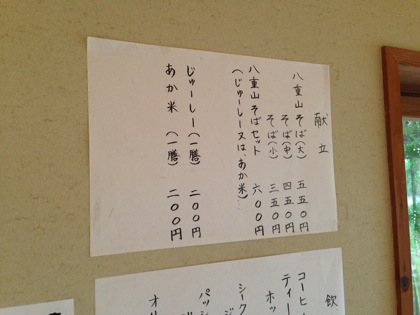 献立
八重山そば(大) 五五〇円
そば(中) 四五〇円
そば(小) 三五〇円
八重山そばセット 六〇〇円
(じゅーしースは、あか米)
じゅーしー(一膳) 二〇〇円
あか米 (一膳) 二〇〇円
飲
コーヒ
ティー
ホッ
シーク
ジ
パッシ
ジ
オリ